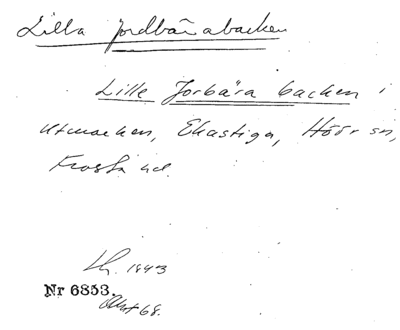 Lilla Jordbärabacken
Lille Jorbära backen i
utmarken, Ekastiga, Höör sn,
Frosta hd.
Lh. 1843
Nr 6853.
Avst 68.